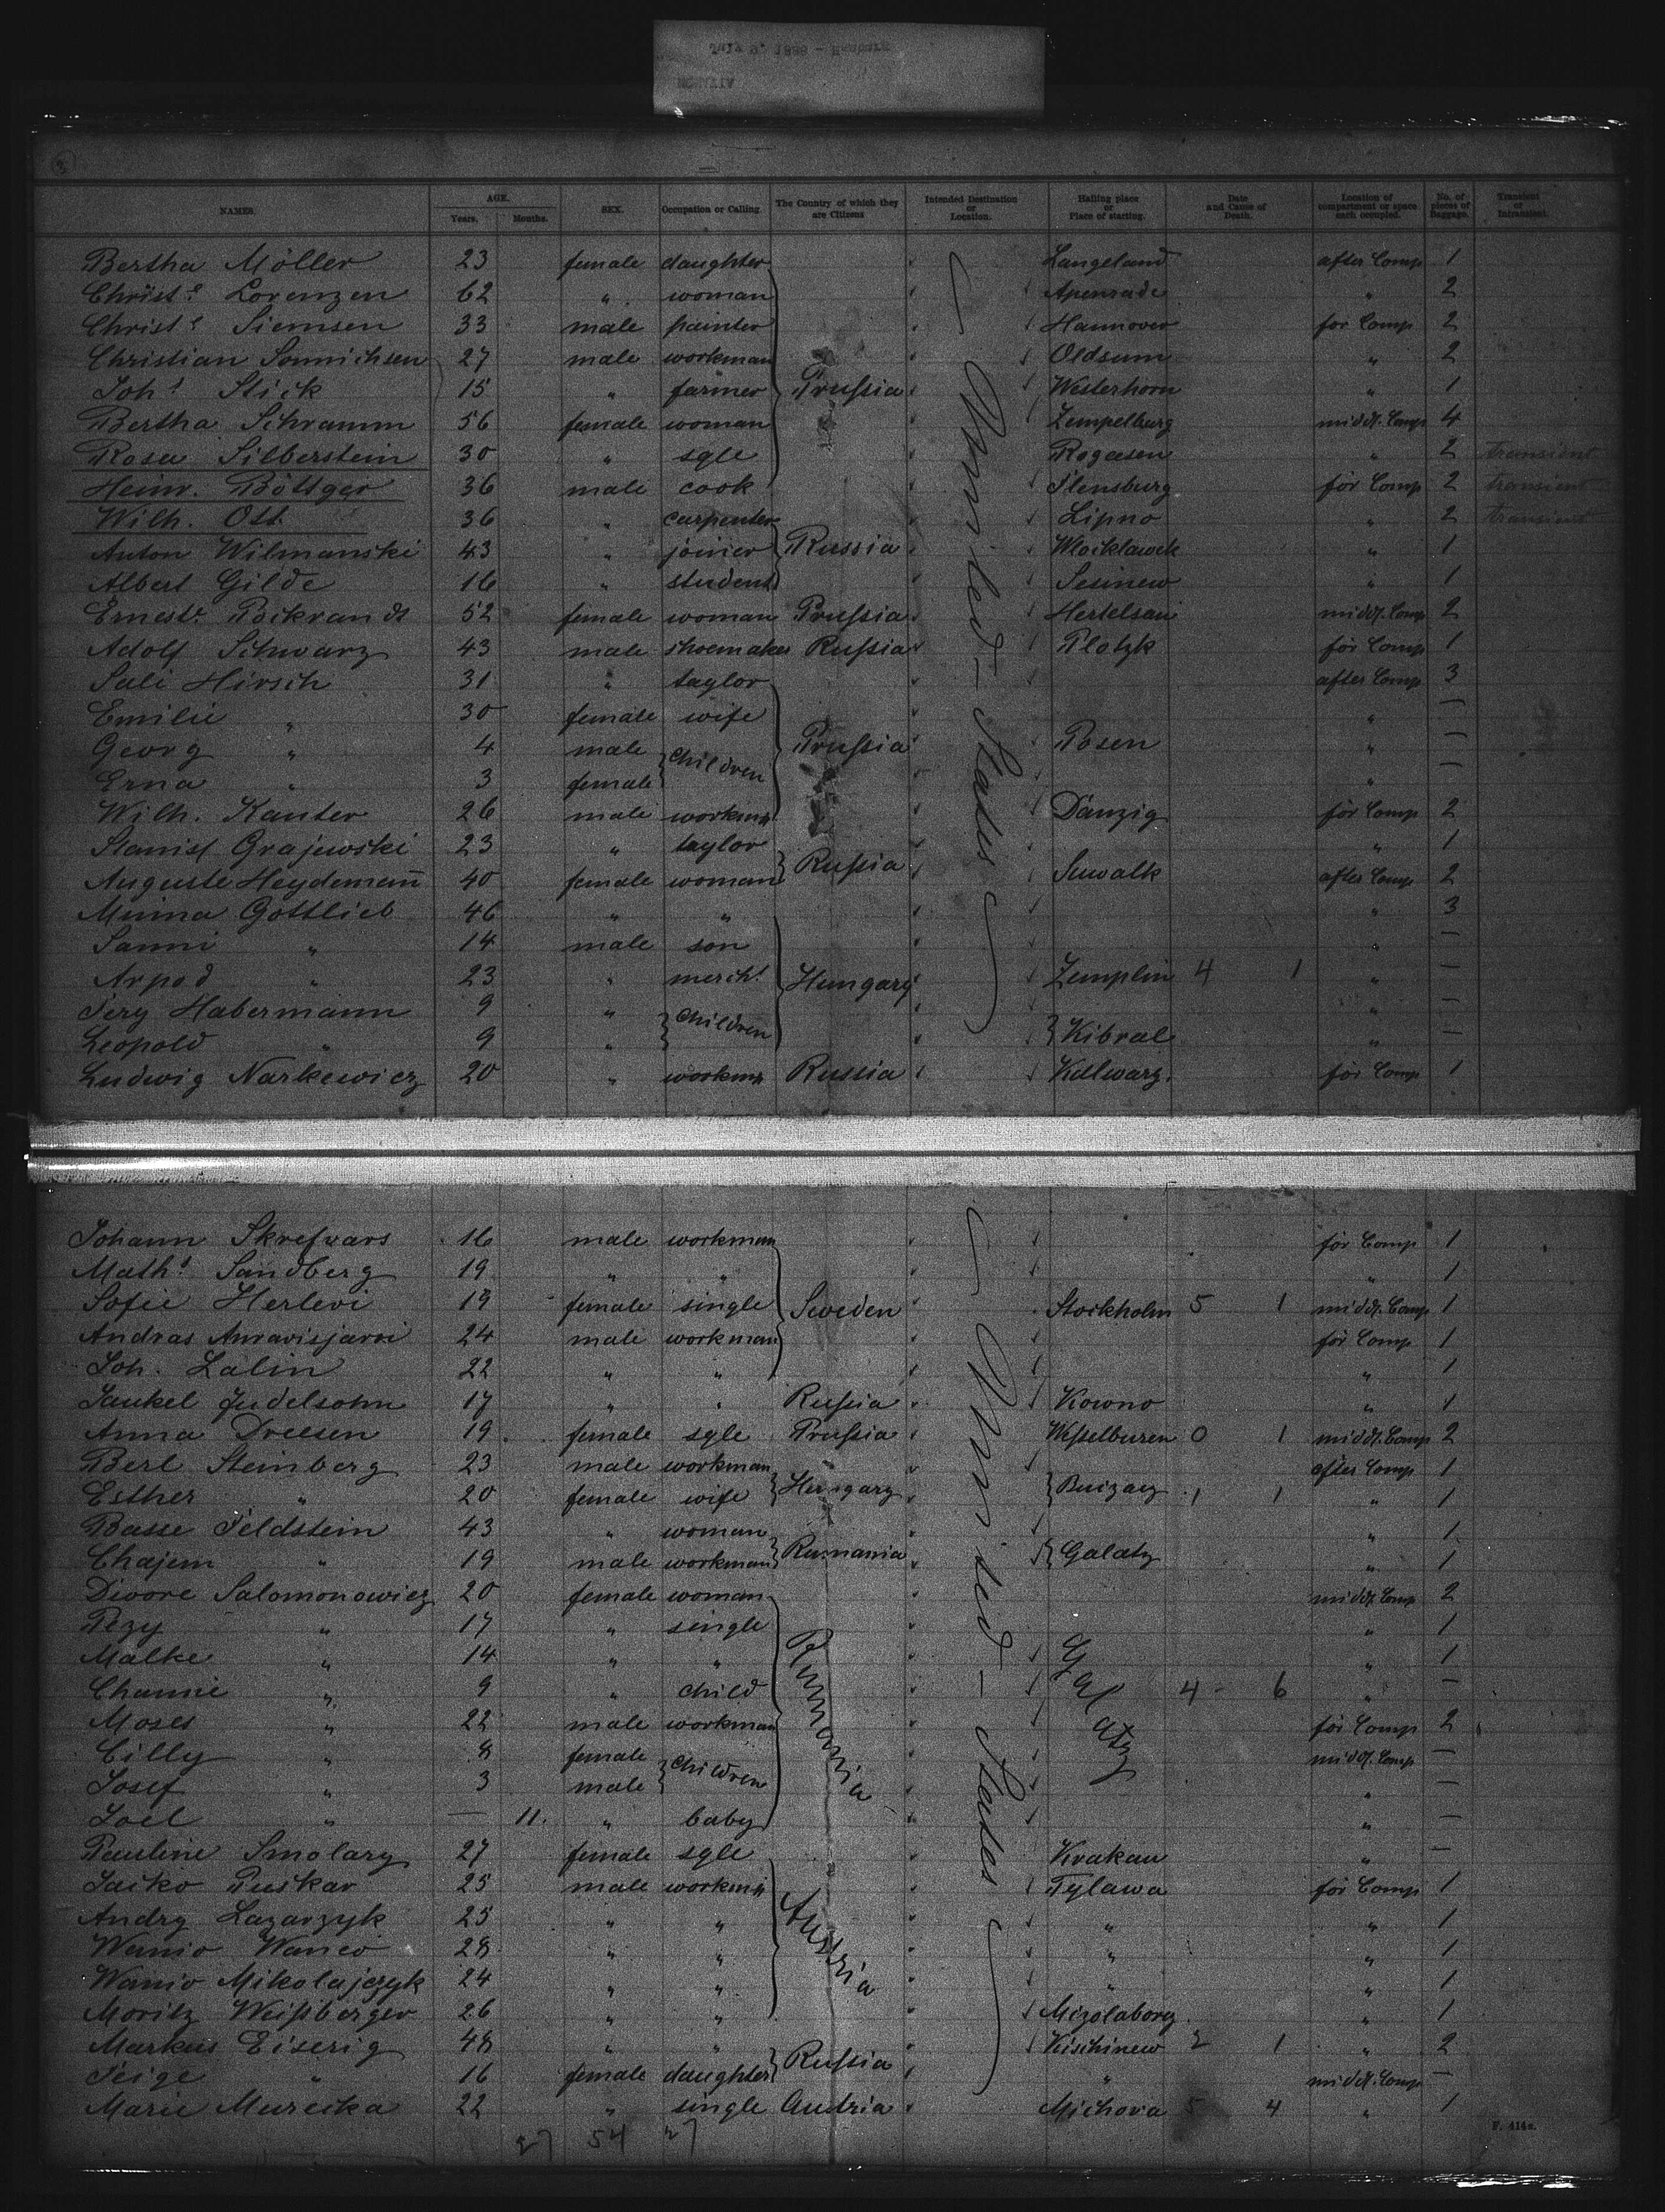 NAMES. AGE. Years. Months. SEX. Occupation or Calling. The Country of which they are Citizens Intended Destination or Location. Halting place or Place of starting. Date and Cause of Death. Location of compartment or space each occupied. No. of pieces of Baggage. Transient or Intransient.
Bertha Möller 23 female daughter Langeland after Comp 1
Christ. Lorenzen 62 " woman Apenrade " 2
Christ. Siemsen 33 male painter Hannover for Comp 2
Christian Sönnichsen 27 male workman Oldsum " 2
Joh. Stick 15 " farmer Prussia Westerhorn " 1
Bertha Schramm 56 female woman Zempelburg middl. Comp 4
Rosa Silberstein 30 " sgle Rogasen " 2 transient
Heinr. Böttger 36 male cook Flensburg for Comp 2 transient
Wilh. Ott 36 " carpenter Lipno " 2 transient
Anton Wilmanski 43 " joiner Russia Wloclawek " 1
Albert Gilde 16 " student Sesinew " 1
Ernest. Pickrandt 52 female woman Prussia Hertelsau middl. Comp 2
Adolf Schwarz 43 male shoemaker Russia Plotzk for Comp 1
Sali Hirsch 31 " taylor after Comp 3
Emilie " 30 female wife " —
Georg " 4 male children Prussia Posen " —
Erna " 3 female " —
Wilh. Kanter 26 male workman Danzig for Comp 2
Stanisl Grajewski 23 " taylor " 1
Auguste Heydemann 40 female woman Russia Suwalk after Comp 2
Minna Gottlieb 46 " " " 3
Sanni " 14 male son " —
Arpad " 23 " mercht Hungary Zemplin 4 1 " —
Fery Habermann 9 " children " —
Leopold " 9 " Kibral " —
Ludwig Narkewicz 20 " workman Russia Kalwarz. for Comp 1
United-States
Johann Skrefvars 16 male workman for Comp 1
Math. Sandberg 19 " " " 1
Sofie Herlevi 19 female single Sweden Stockholm 5 1 middl. Comp 1
Andras Anravisjarvi 24 male workman for Comp 1
Joh. Lalin 22 " " " 1
Jankel Judelsohn 17 " " Russia Kowno " 1
Anna Dreesen 19 female sgle Prussia Wesselburen 0 1 middl. Comp 2
Berl Steinberg 23 male workman after Comp 1
Esther " 20 female wife Hungary 1 1 " 1
Basse Feldstein 43 " woman " 1
Chajem " 19 male workman Rumania Galatz " 1
Divore Salomonowicz 20 female woman middl. Comp 2
Pezy " 17 " single " 1
Malke " 14 " " " 1
Channe " 9 " child Rumania Galatz 4 - 6 " —
Moses " 22 male workman for Comp 2
Cilly " 8 female children middl. Comp —
Josef " 3 male " —
Joel " — 11. " baby " —
Pauline Smolarz 27 female sgle Krakau " —
Jacko Puskar 25 male workman Tylawa for Comp 1
Andry Lazarzyk 25 " " Austria " " 1
Wanio Wanco 28 " " " " 1
Wanio Mikolajczyk 24 " " " " 1
Moritz Weißberger 26 " " Mizolaborcz " 1
Markus Eiserig 48 " " Kischinew 2 1 " 2
Feige " 16 female daughter Russia " middl. Comp —
Marie Mureska 22 " single Austria Michova 5 4 " 1
United-States
27 54 27
F. 414a.